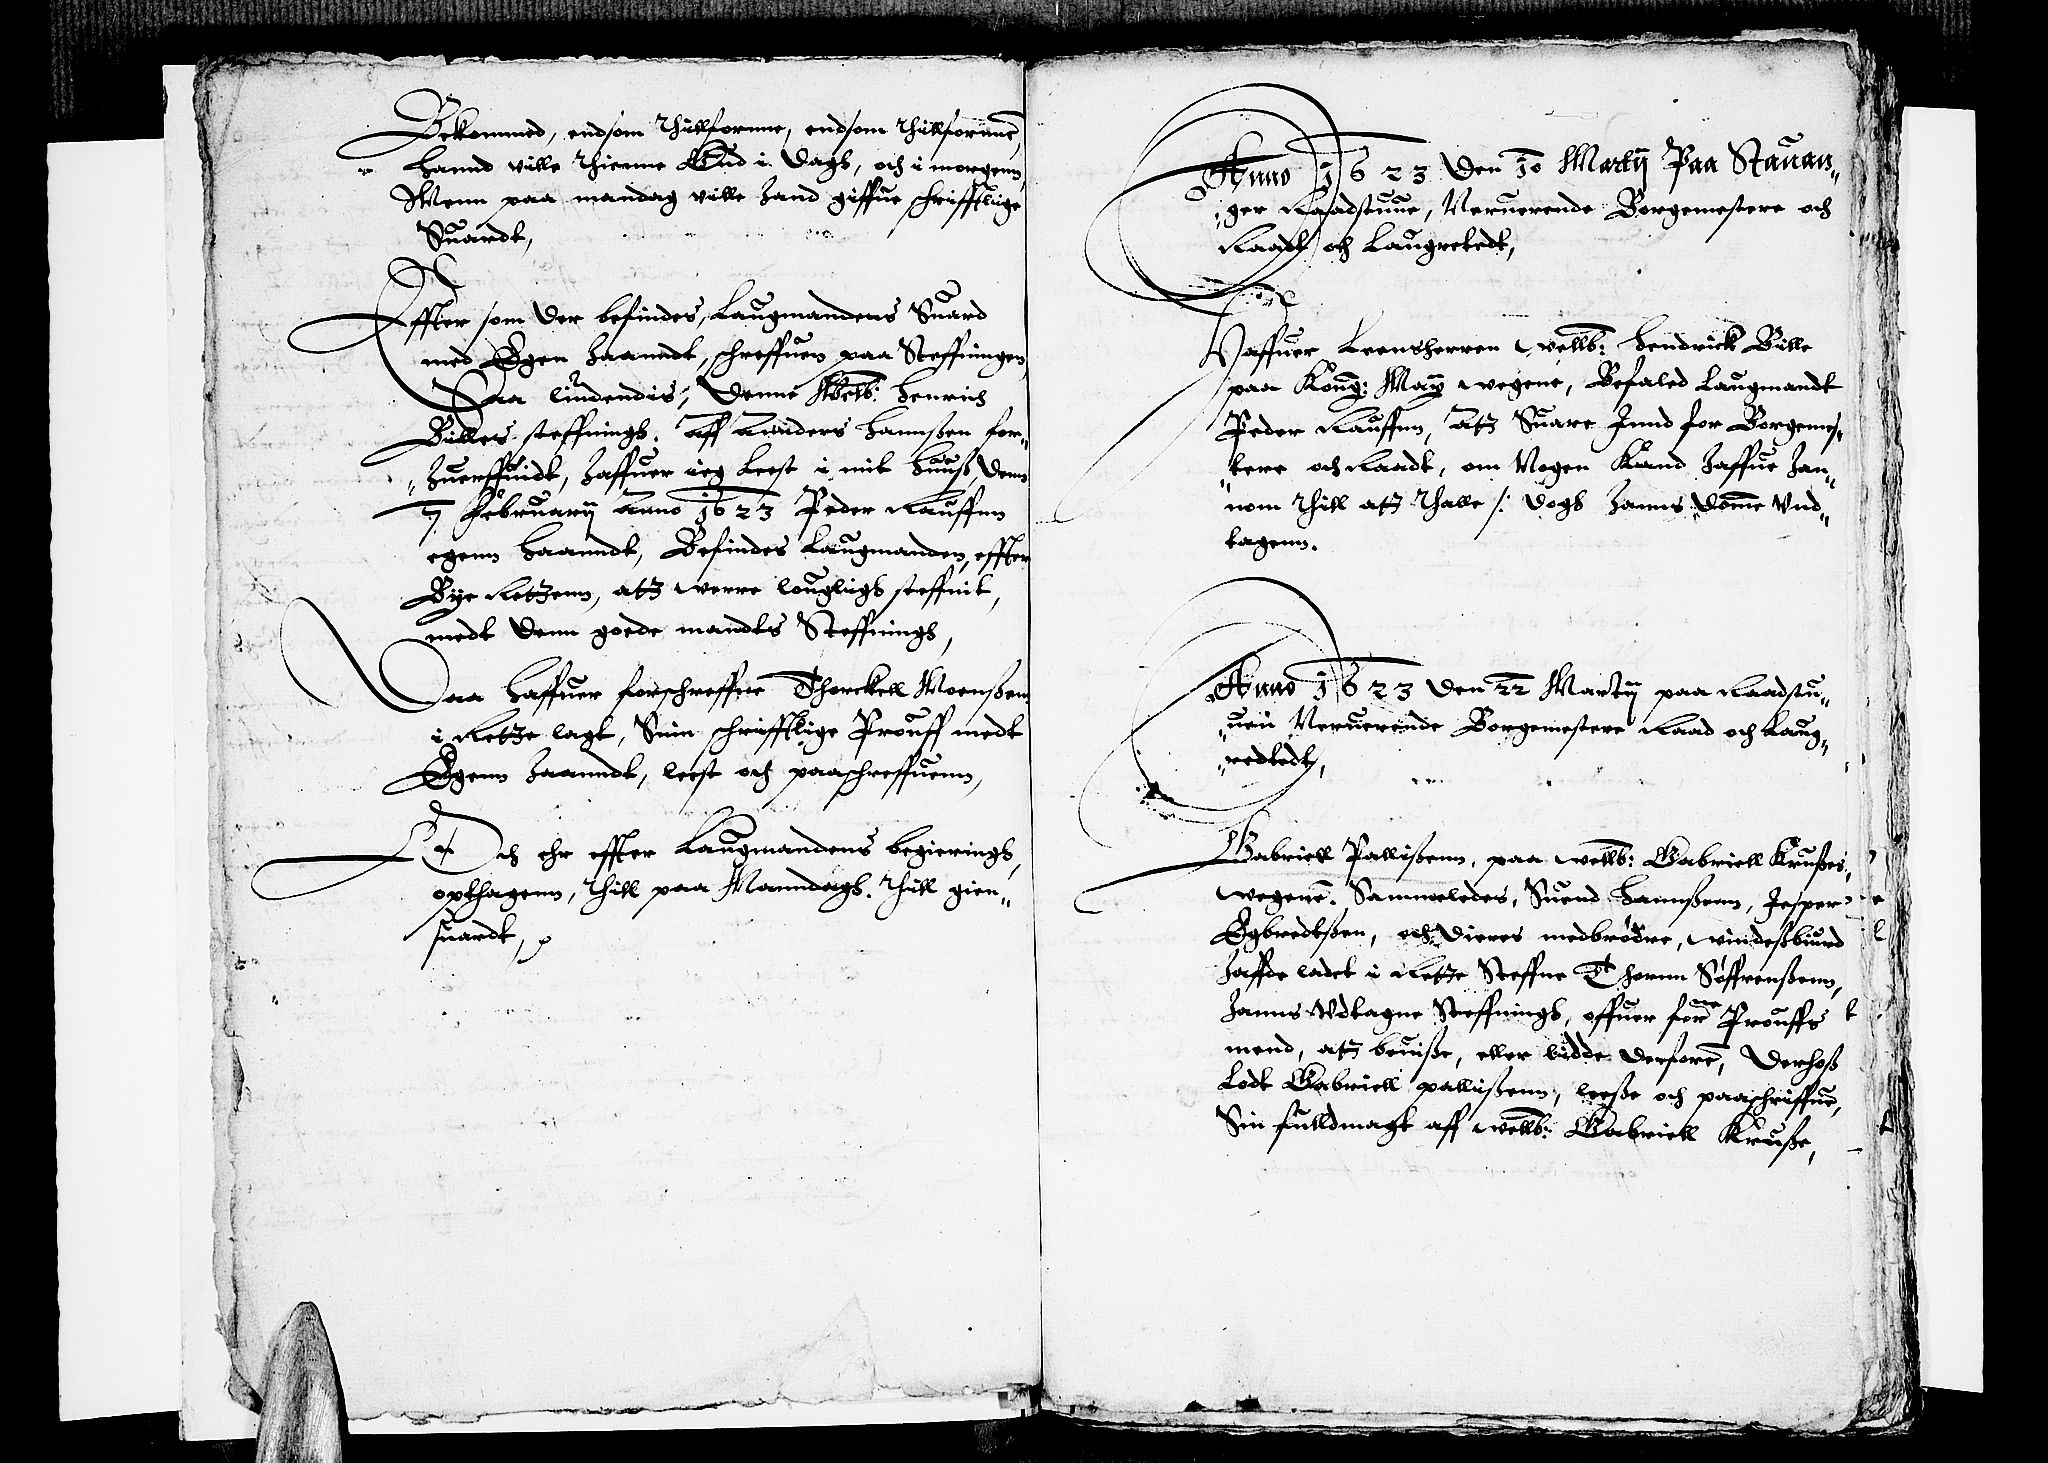 Bekommed, endsom thillfornne, endsom thillfornne,
hannd ville thienne Gud i dagh, och i morgenn,
Menn paa mandag ville hand giffue schrifftlige
Suardt,
Effter som der befindes, Laugmandens Suard
med Egen haanndt, schreffuen paa Steffningen,
Saa liudendis, Denne Welb: Henrich
Billes steffningh. Aff Anders hannßen for-
huerffuidt, haffuer ieg leest i mit huuß, denn
7 February Anno 1623 Peder Rauffnn
egenn haanndt, Befindes Laugmanden, effter
Bye Retzenn, att verre louglugh steffnit,
medt denn goede mandts Steffningh,
Saa haffuer forschreffne Thorckell Moenßen
i Retze lagt, Sinn schrifftlige Prouff medt
Egenn haanndt, leest och paaschreffuenn,
Och ehr effter Laugmandens begieringh,
opthagenn, thill paa Manndagh. thill gien-
suardt,
Anno 1623 den 10 Martij Paa Stauan-
ger Raadstuue, Veruerende Borgemestere och
Raadt och Laugretedt,
Haffuer Leensherren Wellb: Hendrick Bille
paa Kong: May wegene, Befaled Laugmandt
Peder Rauffnn, att Suare Innd for Borgemes-
tere och Raadt, om Nogen Kand haffue han-
nom thill att thalle /: dogh hanns domme Und-
tagenn.
Anno 1623 den 22 Martij paa Raadstu-
uen Veruerende Borgemestere Raad och Laug-
redtedt,
Gabriell Pallißenn, paa wellb: Gabriell Krußes
wegene. Sammeledes, Suend hannßenn, Jesper
Egbredtßen, och dieres medbrødre, vindeßbiurd
haffde ladet i Retze Steffne Thornn Søffrenßenn,
hanns Udtagne Steffningh, offuer forne Prouffs
mend, att beuiße, eller lidde derfore, Derhoß
Lodt Gabriell pallißenn, leeße och paaschriffue,
Sin fulldmagt aff wellb: Gabriell Kruße,